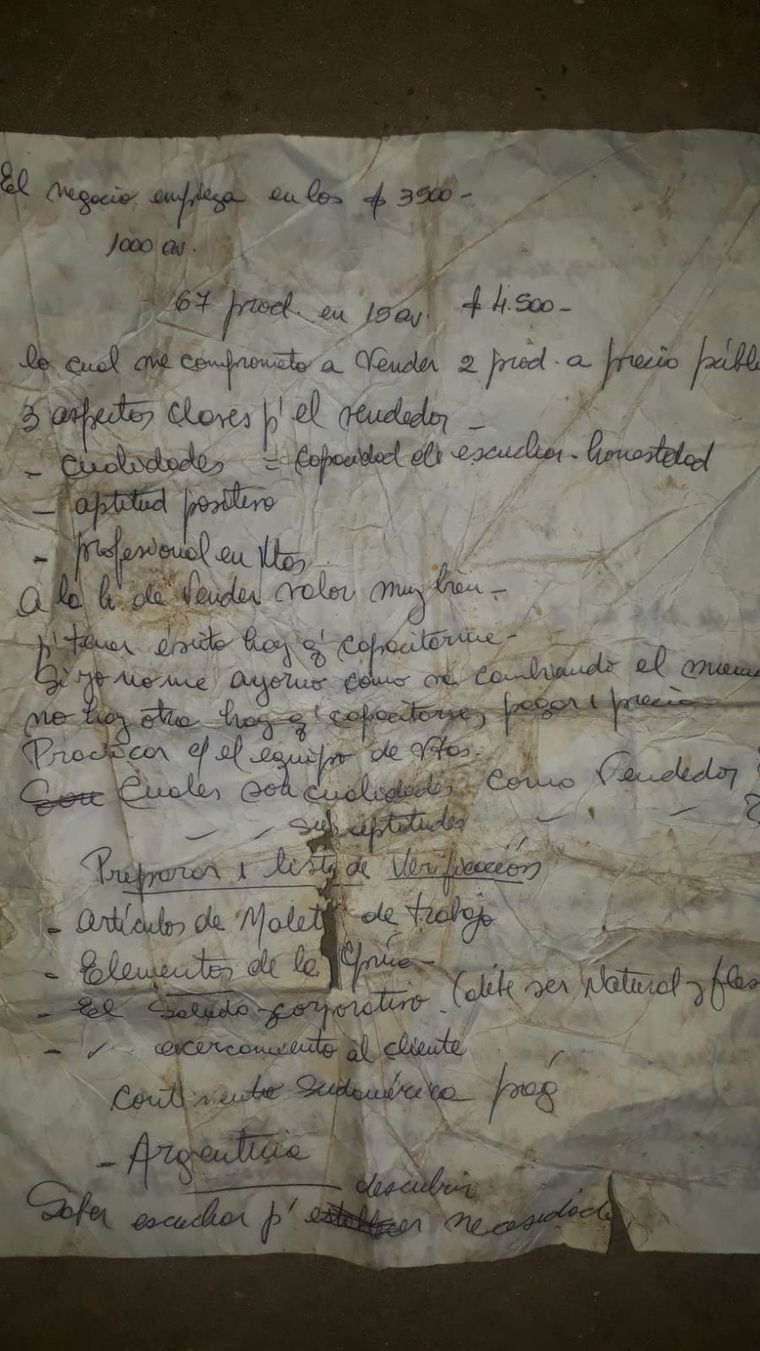 El negocio empieza en los $ 3500 -
1000 av.
67 prod. en 15 av. $ 4.500 -
lo cual me comprometo a vender 2 prod. a precio públ
3 aspectos claves p' el vendedor -
- cualidades = capacidad de escuchar - honestidad
- aptitud positiva
- profesional en Vtas
A la h de vender valor muy bien -
p' tener éxito hay q' capacitarme -
Si yo no me ayorno como va cambiando el
no hay otra hay q' capacitarse, pagar 1 precio
Practicar c/ el equipo de Vtas.
Son Cuales son cualidades como Vendedor ?
" " sus aptitudes " " ?
Preparar 1 lista de Verificación
- artículos de Malet de trabajo
- Elementos de la
- El Saludo corporativo. (debe ser Natural y
- " acercamiento al cliente
Continente Sudamérica
- Argentina
descubrir
Saber escuchar p' necesidad